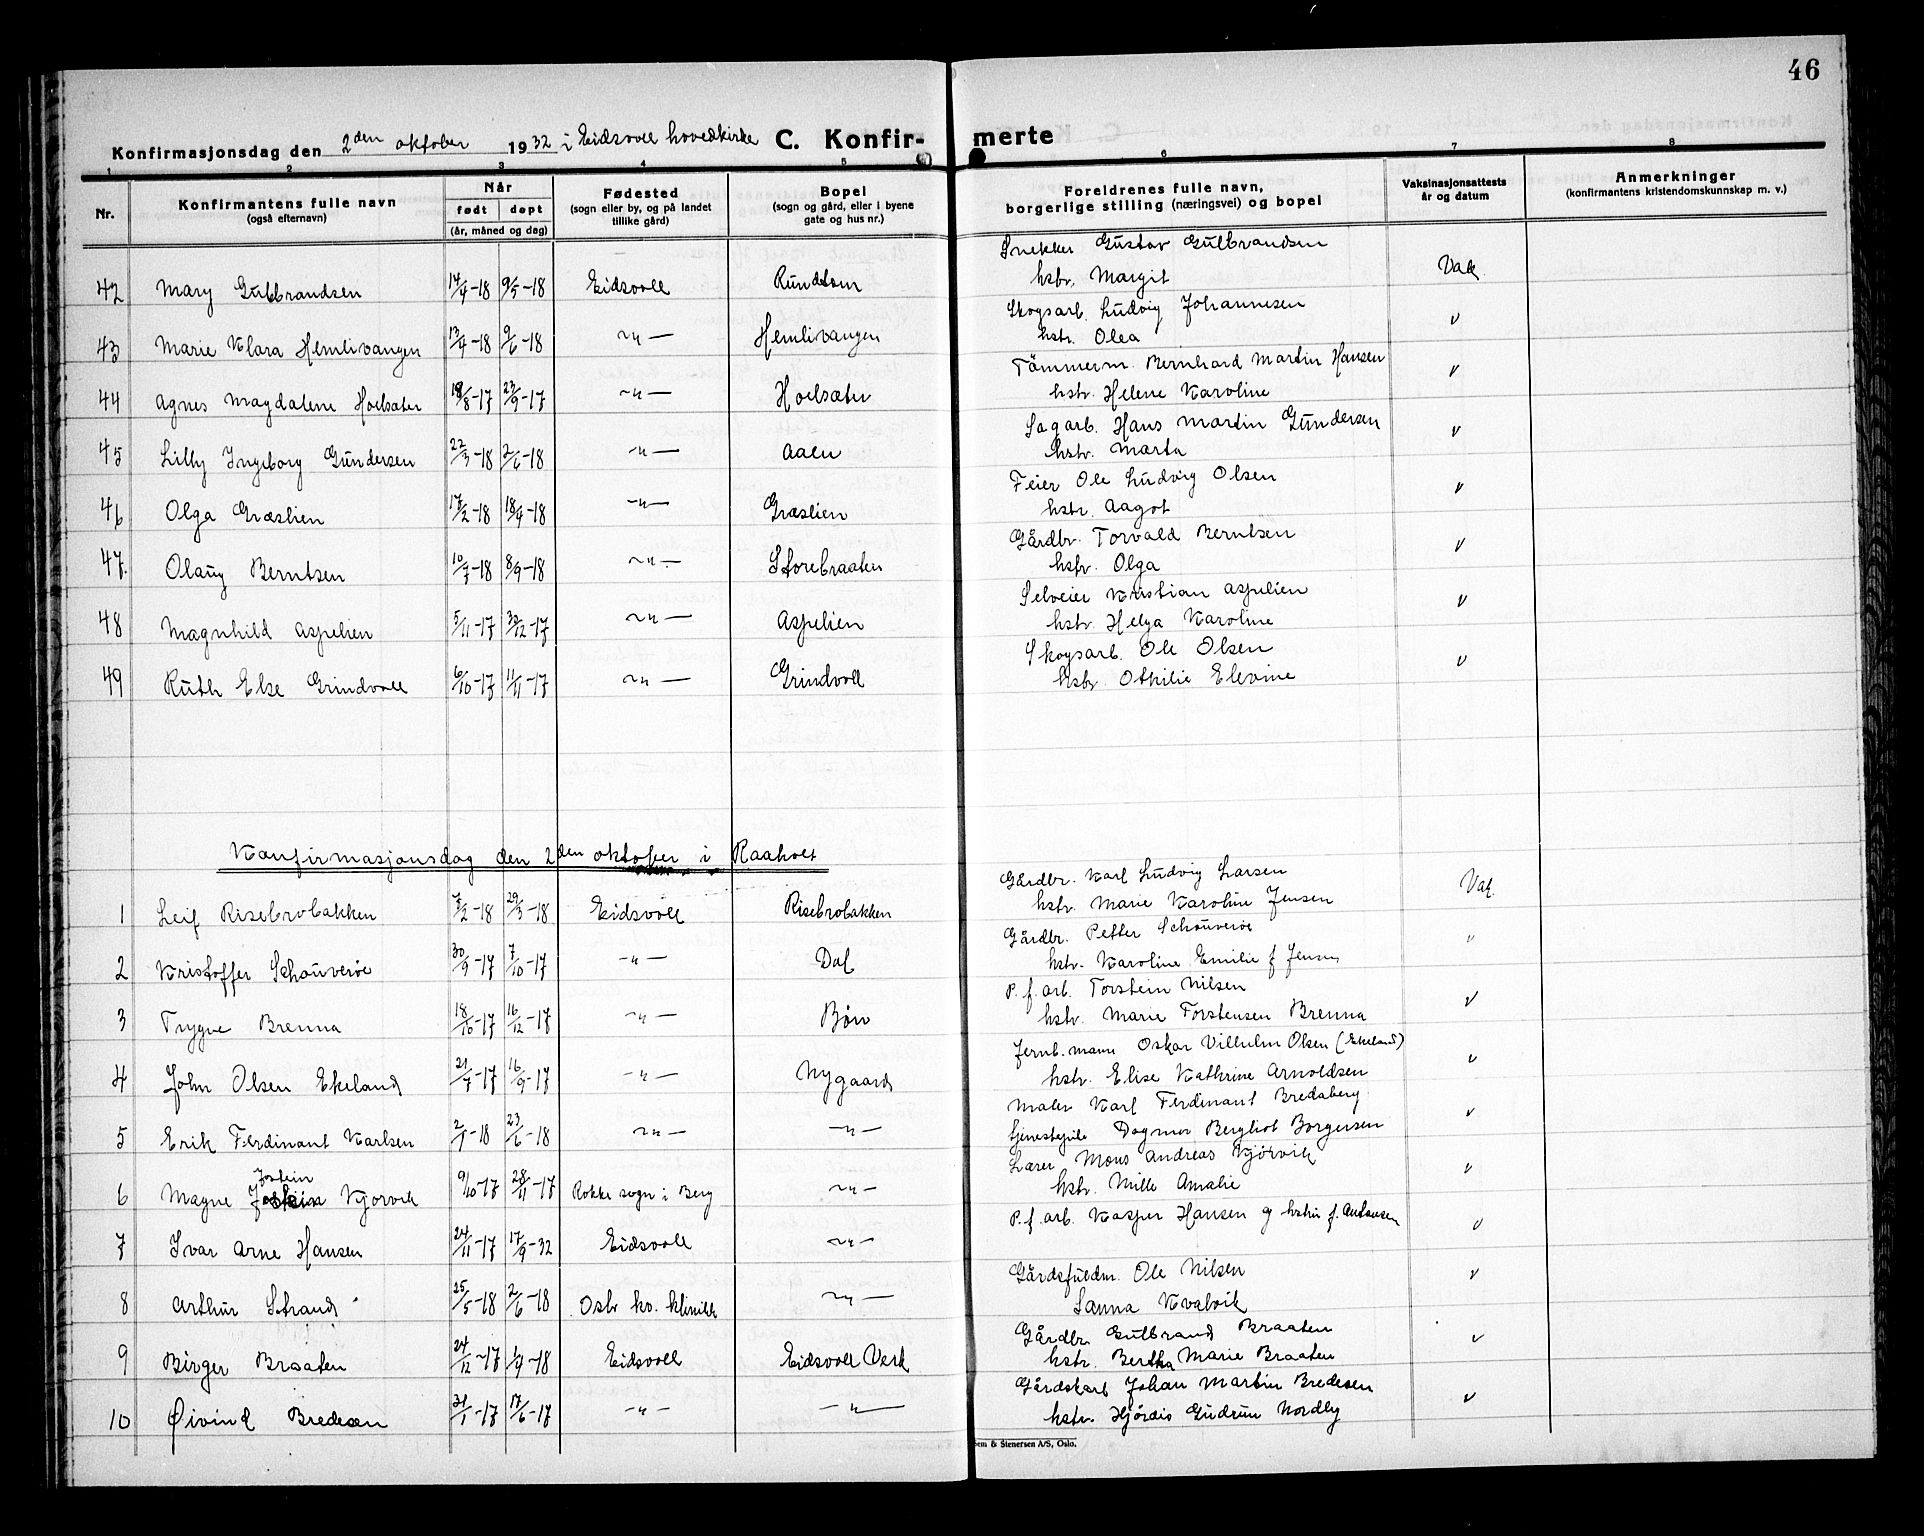 46
Konfirmasjonsdag den 2den oktober 1932 i Eidsvoll hovedkirke C. Konfir- merte
1 2 3 4 5 6 7 8
Nr. Konfirmantens fulle navn (også efternavn) Når født døpt (år, måned og dag) Fødested (sogn eller by, og på landet tillike gård) Bopel (sogn og gård, eller i byene gate og hus nr.) Foreldrenes fulle navn, borgerlige stilling (næringsvei) og bopel Vaksinasjonsattests år og datum Anmerkninger (konfirmantens kristendomskunnskap m. v.)
42 Mary Gulbrandsen 14/4-18 9/5-18 Eidsvoll Rundtom Snekker Gustav Gulbrandsen Vak.
hstr. Margit
43 Marie Klara Hemlivangen 13/4-18 9/6-18 —"— Hemlivangen Skogsarb. Ludvig Johannesen v
hstr. Olea
44 Agnes Magdalene Hoelsæter 18/8-17 23/9-17 —"— Hoelsæter Tömmerm. Bernhard Martin Hansen v
hstr. Helene Karoline
45 Lilly Ingeborg Gundersen 22/3-18 2/6-18 —"— Aalen Sagarb. Hans Martin Gundersen v
hstr. Marta
46 Olga Græslien 17/2-18 18/4-18 —"— Græslien Feier Ole Ludvig Olsen v
hstr. Aagot
47. Olaug Berntsen 10/7-18 8/9-18 —"— Storebraaten Gårdbr. Torvald Berntsen v
hstr. Olga
48 Magnhild Aspelien 5/11-17 30/12-17 —"— Aspelien Selveier Kristian Aspelien v
hstr. Helga Karoline
49 Ruth Else Grindvoll 6/10-17 11/11-17 —"— Grindvoll Skogsarb. Ole Olsen v
hstr. Othilie Elevine
Konfirmasjonsdag den 2den oktober i Raaholt
1 Leif Risebrobakken 7/2-18 29/3-18 Eidsvoll Risebrobakken Gårdbr. Karl Ludvig Larsen Vak.
hstr. Marie Karoline Jensen
2 Kristoffer Schouverøe 30/9-17 7/10-17 —"— Dal Gårdbr. Petter Schouverøe v
hstr. Karoline Emilie f Jensen
3 Trygve Brenna 18/10-17 16/12-17 —"— Bøn P. f. arb. Torstein Nilsen v
hstr. Marie Torstensen Brenna
4 John Olsen Ekeland 21/7-17 16/9-17 —"— Nygaard Jernb. mann Oskar Vilhelm Olsen (Ekeland) v
hstr. Elise Kathrine Arnoldsen
5 Erik Ferdinant Karlsen 2/1-18 23/6-18 —"— —"— Maler Karl Ferdinant Bredaberg v
tjenestepike Dagmar Bergliot Borgersen
6 Magne Jostein Kjørvik 9/10-17 28/11-17 Rokke sogn i Berg —"— Lærer Mons Andreas Kjörvik v
hstr. Mille Amalie
7 Ivar Arne Hansen 24/11-17 17/9-32 Eidsvoll —"— P. f. arb. Kasper Hansen og hstru f. Antonsen v
8 Arthur Strand 25/5-18 2/6-18 Oslo kv. klinikk —"— Gårdsfuldm. Ole Nilsen v
Sanna Kvalvik
9 Birger Braaten 24/12-17 1/4-18 Eidsvoll Eidsvoll Verk Gårdbr. Gulbrand Braaten v
hstr. Bertha Marie Braaten
10 Øivind Bredesen 31/1-17 17/6-17 —"— —"— Gårdskarl Johan Martin Bredesen v
hstr. Hjördis Gudrun Nordby
em & Stenersen A/S, Oslo.